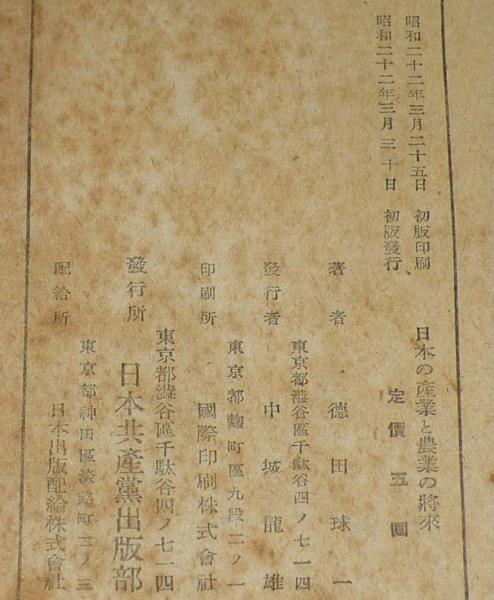 昭和二十二年三月二十五日 初版印刷
昭和二十二年三月三十日 初版發行
日本の產業と農業の將來
定價五圓
著者 德田球一
東京都澁谷區千駄谷四ノ七一四
發行者 中城龍雄
東京都麴町區九段二ノ一
印刷所 國際印刷株式會社
東京都澁谷區千駄谷四ノ七一四
發行所 日本共產黨出版部
東京都神田區淡路町二ノ三
配給所 日本出版配給株式會社